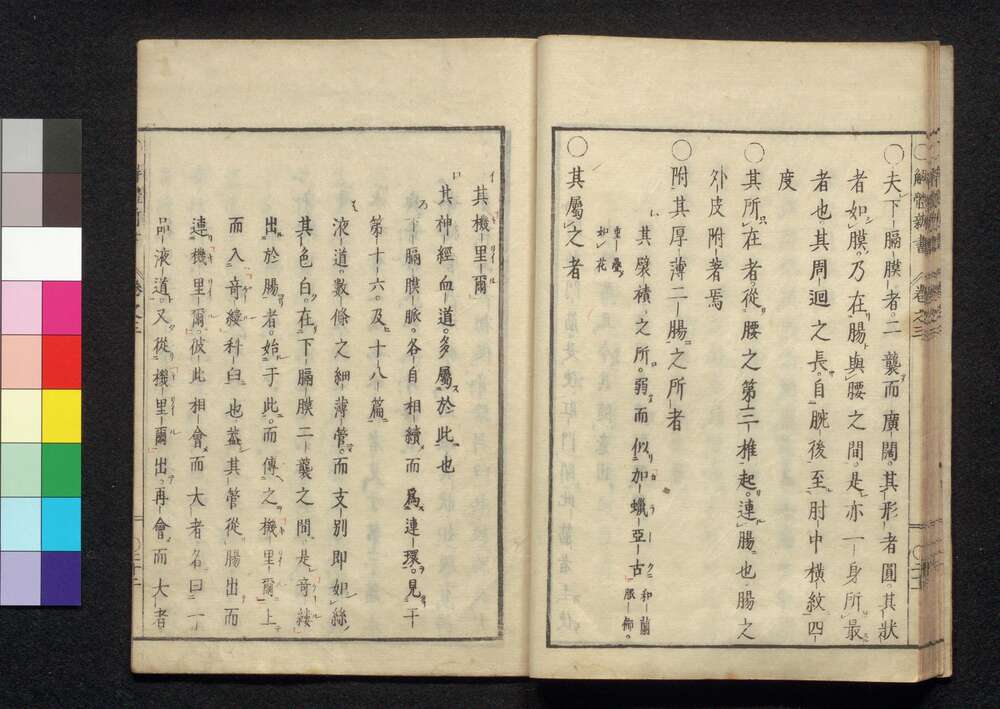 解體新書 卷之三
○夫下膈膜者二襲而廣闊其形者圓其狀
者如膜乃在腸與腰之間是亦一身所最
者也其周迴之長自腕後至肘中橫紋四
度
○其所在者從腰之第三椎起連腸也腸之
外皮附著焉
○附其厚薄二腸之所者
其襞積之所弱而似加蠟亞古
和蘭服飾
重疊如花
○其屬之者
其機里爾
其神經血道多屬於此也
下膈膜脈各自相續而為連環見于
第十六及十八篇
液道數條之細薄管而支別即如絲
其色白在下膈膜二襲之間是竒縷
出於腸者始于此而傳之機里爾上
而入竒縷科臼也蓋其管從腸出而
連機里爾彼此相會而大者名曰一
品液道又從機里爾出再會而大者